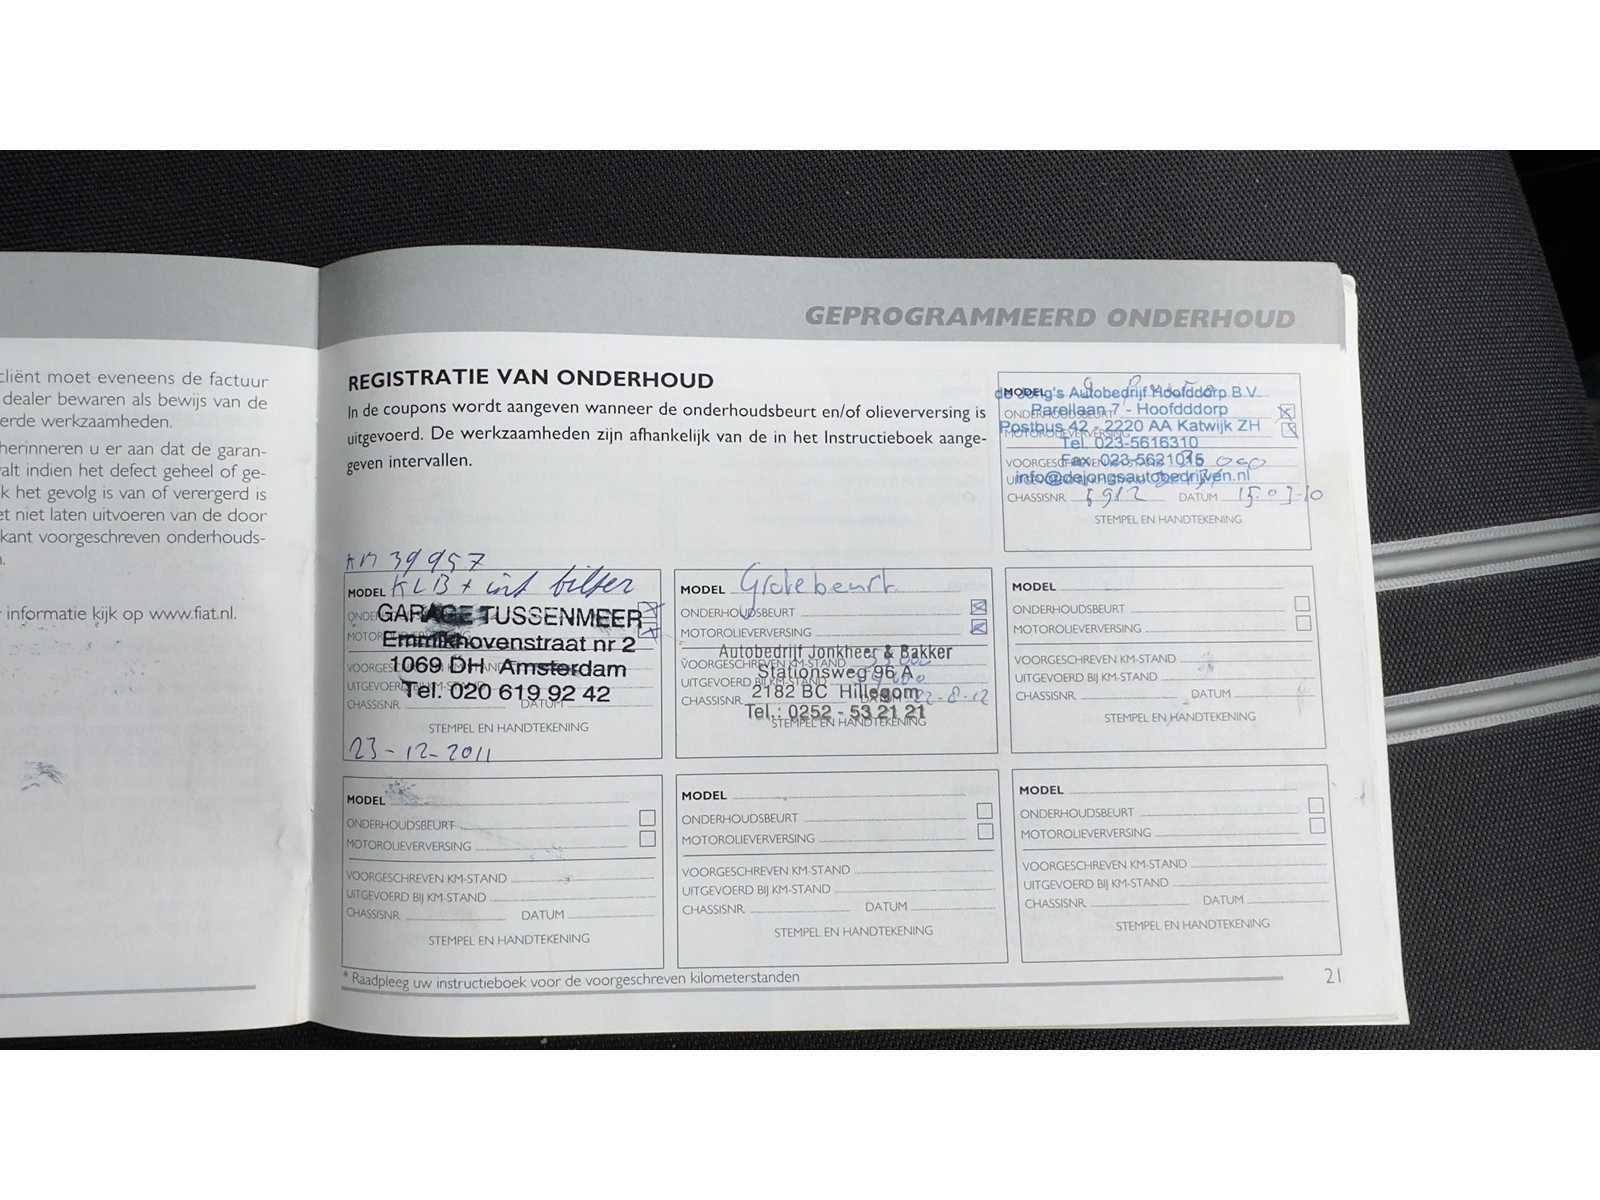 GEPROGRAMMEERD ONDERHOUD
cliënt moet eveneens de factuur
dealer bewaren als bewijs van de
erde werkzaamheden.
herinneren u er aan dat de garan-
valt indien het defect geheel of ge-
k het gevolg is van of verergerd is
et niet laten uitvoeren van de door
kant voorgeschreven onderhouds-
informatie kijk op www.fiat.nl.
REGISTRATIE VAN ONDERHOUD
In de coupons wordt aangeven wanneer de onderhoudsbeurt en/of olieverversing is
uitgevoerd. De werkzaamheden zijn afhankelijk van de in het Instructieboek aange-
geven intervallen.
MODEL
de Jong's Autobedrijf Hoofddorp B.V.
Parellaan 7 - Hoofdddorp
Postbus 42 - 2220 AA Katwijk ZH
Tel. 023-5616310
Fax. 023-5621015
info@dejongsautobedrijven.nl
CHASSISNR. 5912 DATUM 15-03-10
STEMPEL EN HANDTEKENING
KM 39957
MODEL KLB + int filter
GARAGE TUSSENMEER
Emmikhovenstraat nr 2
1069 DH Amsterdam
Tel. 020 619 92 42
CHASSISNR. DATUM
STEMPEL EN HANDTEKENING
23-12-2011
MODEL Grotebeurt
ONDERHOUDSBEURT
MOTOROLIEVERVERSING
Autobedrijf Jonkheer & Bakker
VOORGESCHREVEN KM-STAND
Stationsweg 96 A
UITGEVOERD BIJ KM-STAND
2182 BC Hillegom
CHASSISNR. 22-8-12
Tel.: 0252 - 53 21 21
STEMPEL EN HANDTEKENING
MODEL
ONDERHOUDSBEURT
MOTOROLIEVERVERSING
VOORGESCHREVEN KM-STAND
UITGEVOERD BIJ KM-STAND
CHASSISNR. DATUM
STEMPEL EN HANDTEKENING
MODEL
ONDERHOUDSBEURT
MOTOROLIEVERVERSING
VOORGESCHREVEN KM-STAND
UITGEVOERD BIJ KM-STAND
CHASSISNR. DATUM
STEMPEL EN HANDTEKENING
MODEL
ONDERHOUDSBEURT
MOTOROLIEVERVERSING
VOORGESCHREVEN KM-STAND
UITGEVOERD BIJ KM-STAND
CHASSISNR. DATUM
STEMPEL EN HANDTEKENING
MODEL
ONDERHOUDSBEURT
MOTOROLIEVERVERSING
VOORGESCHREVEN KM-STAND
UITGEVOERD BIJ KM-STAND
CHASSISNR. DATUM
STEMPEL EN HANDTEKENING
* Raadpleeg uw instructieboek voor de voorgeschreven kilometerstanden
21